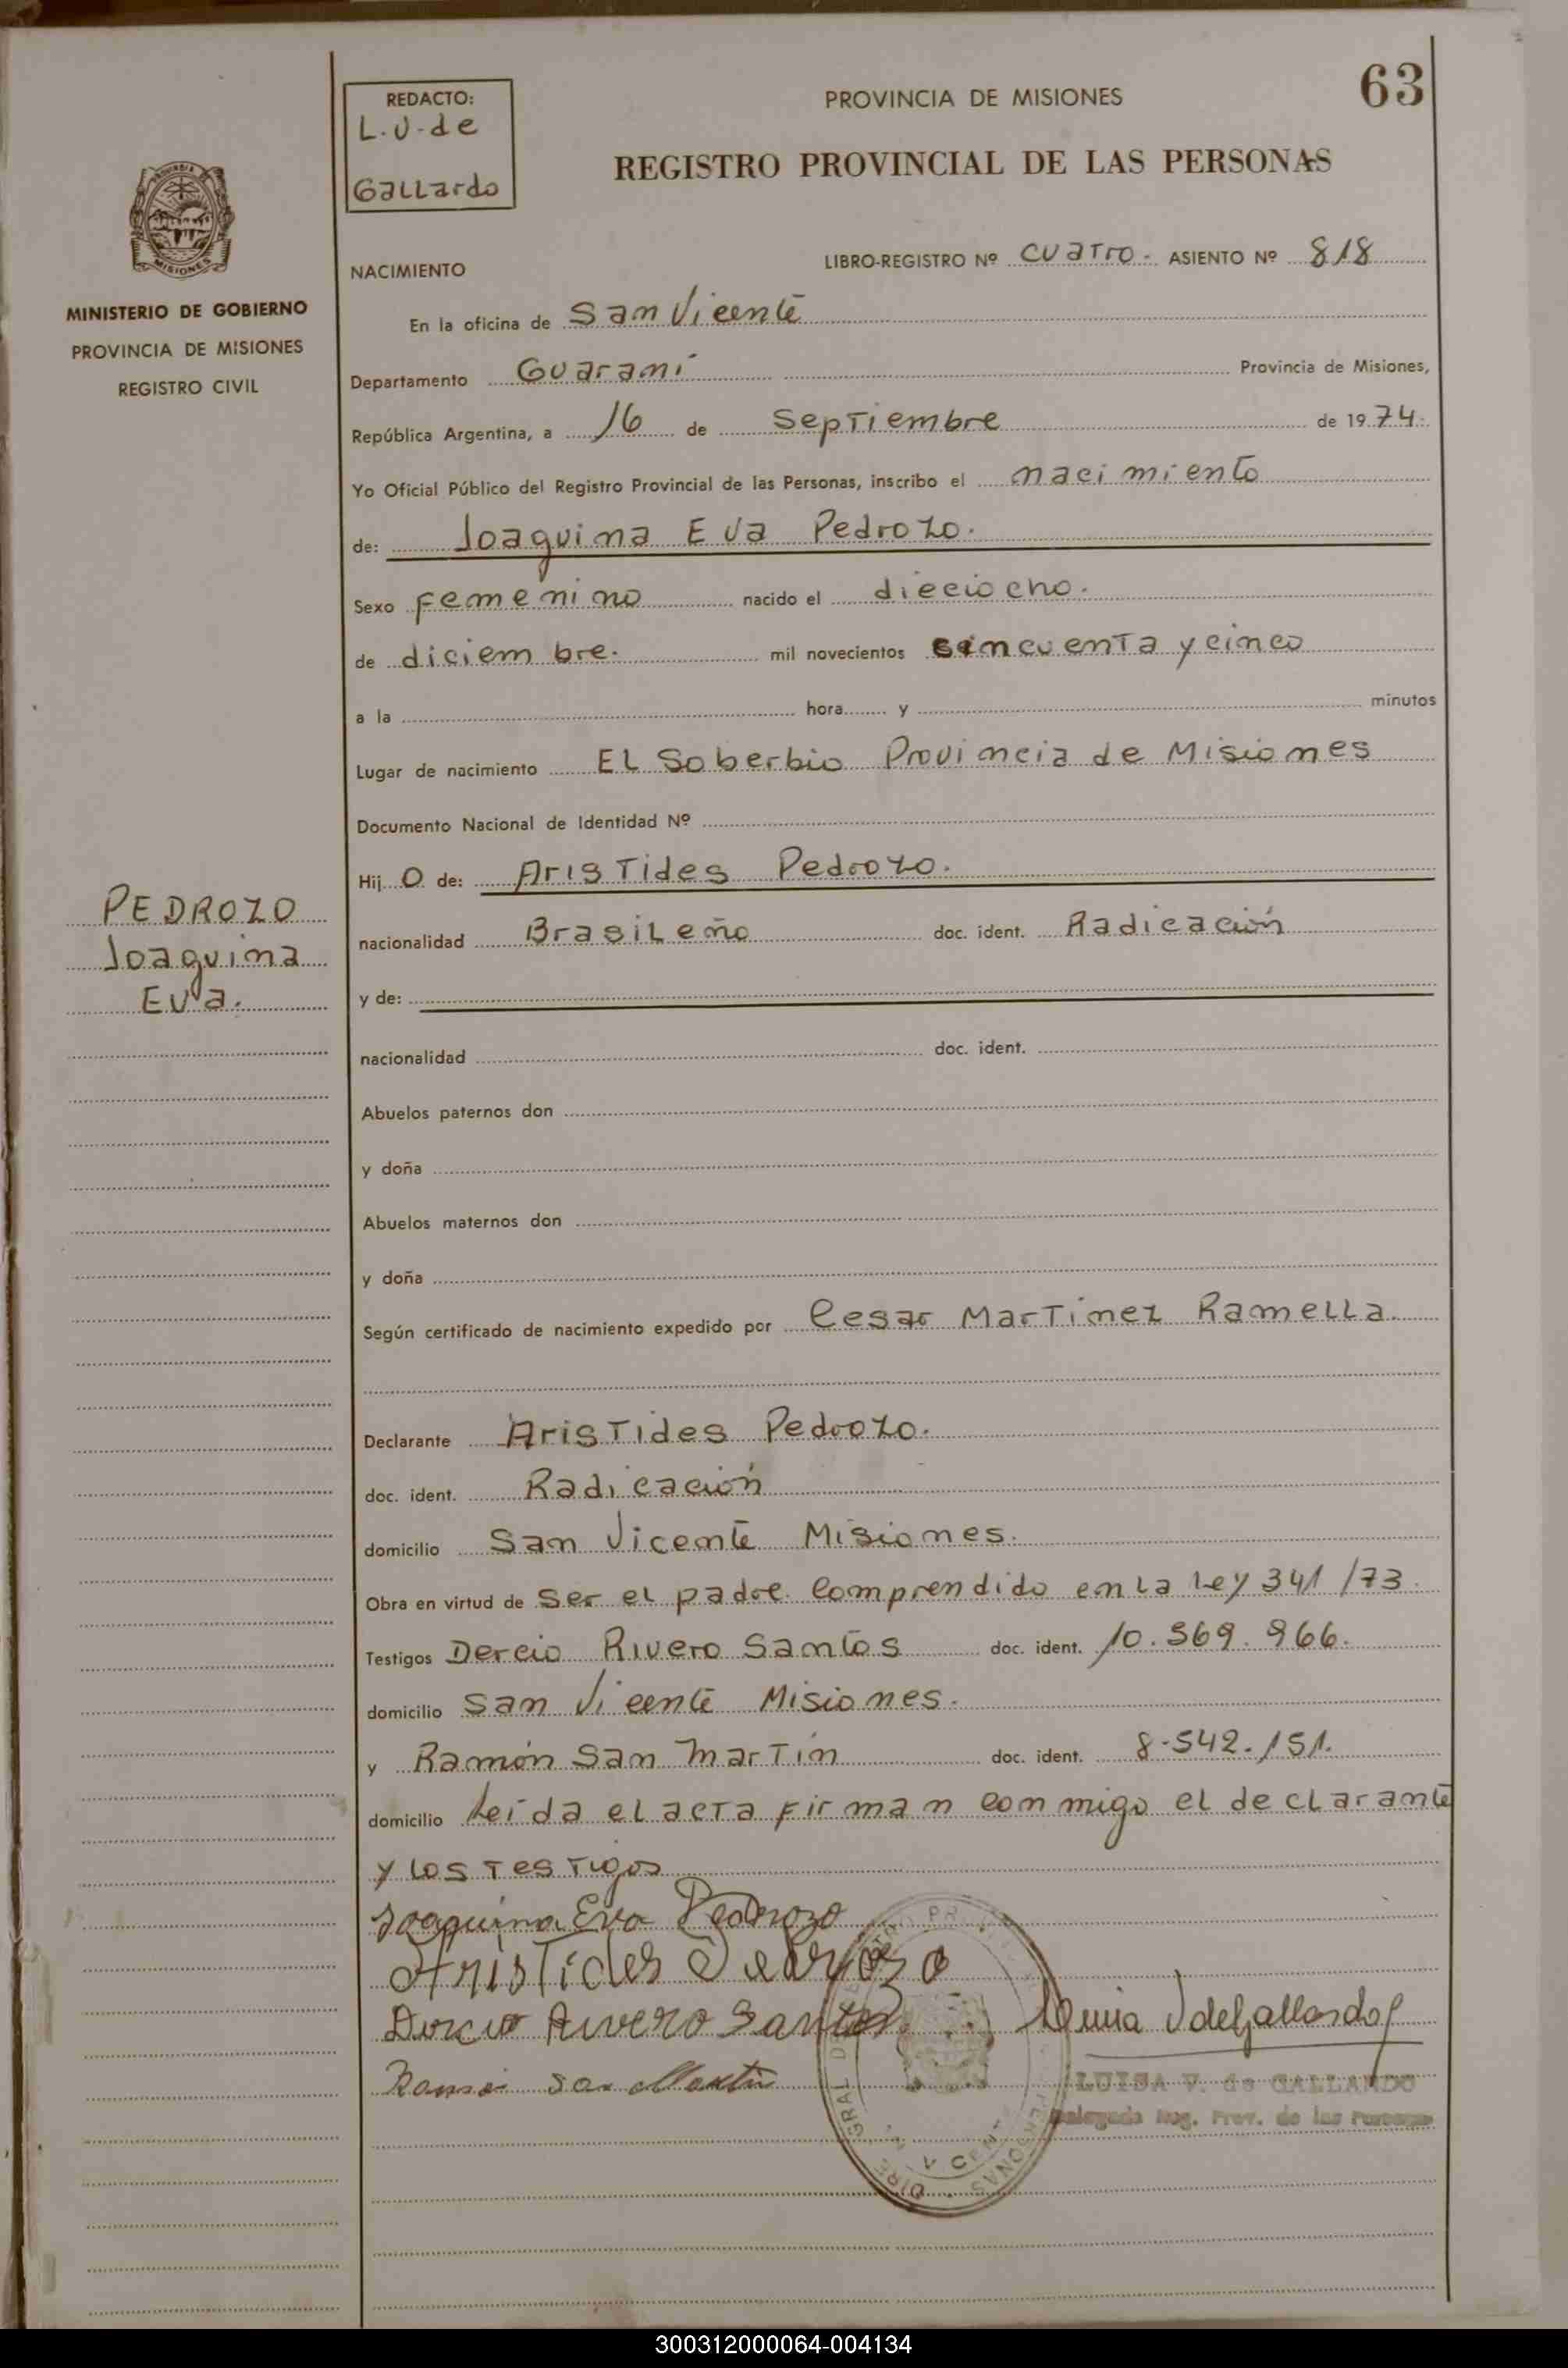 63
REDACTO:
L.V. de
Gallardo
PROVINCIA DE MISIONES
REGISTRO PROVINCIAL DE LAS PERSONAS
MISIONES
MINISTERIO DE GOBIERNO
PROVINCIA DE MISIONES
REGISTRO CIVIL
NACIMIENTO
LIBRO-REGISTRO Nº cuatro.- ASIENTO Nº 818
En la oficina de San Vicente
Departamento Guaraní Provincia de Misiones,
República Argentina, a 16 de Septiembre de 1974.
Yo Oficial Público del Registro Provincial de las Personas, inscribo el nacimiento
de: Joaquina Eva Pedrozo.
Sexo femenino nacido el dieciocho.
de diciembre. mil novecientos cincuenta y cinco
a la hora y minutos
Lugar de nacimiento El Soberbio Provincia de Misiones
Documento Nacional de Identidad Nº
Hij o de: Aristides Pedrozo.
PEDROZO
Joaquina
Eva.
nacionalidad Brasileño doc. ident. Radicación
y de:
nacionalidad doc. ident.
Abuelos paternos don
y doña
Abuelos maternos don
y doña
Según certificado de nacimiento expedido por Cesar Martinez Ramella.
Declarante Aristides Pedrozo.
doc. ident. Radicación
domicilio San Vicente Misiones.
Obra en virtud de ser el padre. Comprendido en la Ley 341/73.
Testigos Dercio Rivero Santos doc. ident. 10.369.966.
domicilio San Vicente Misiones.
y Ramón San Martín doc. ident. 8-542.151.
domicilio Leída el acta firman conmigo el declarante
y los testigos
Joaquina Eva Pedrozo
Aristides Pedrozo
Dercio Rivero Santos
Luisa V de Gallardo
Ramon San Martin
LUISA V. de GALLARDO
Delegada Reg. Prov. de las Personas
300312000064-004134